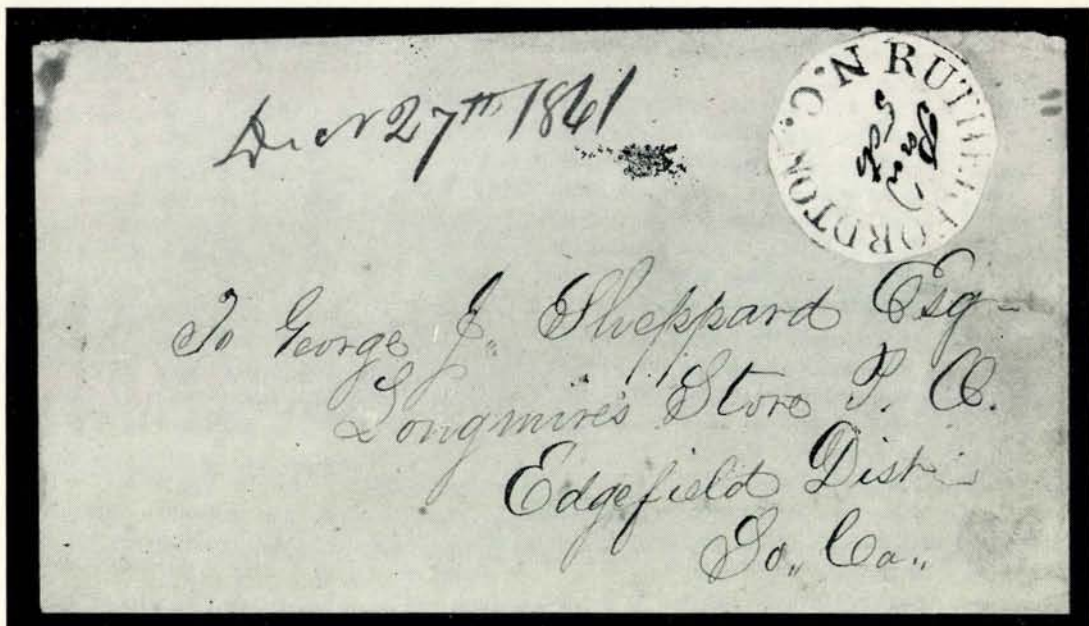 Decr 27th 1861
RUTHERFORDTON N. C.
Paid 5 cts
To George J. Sheppard Esq
Longmire's Store P. O.
Edgefield Dist
So. Ca.